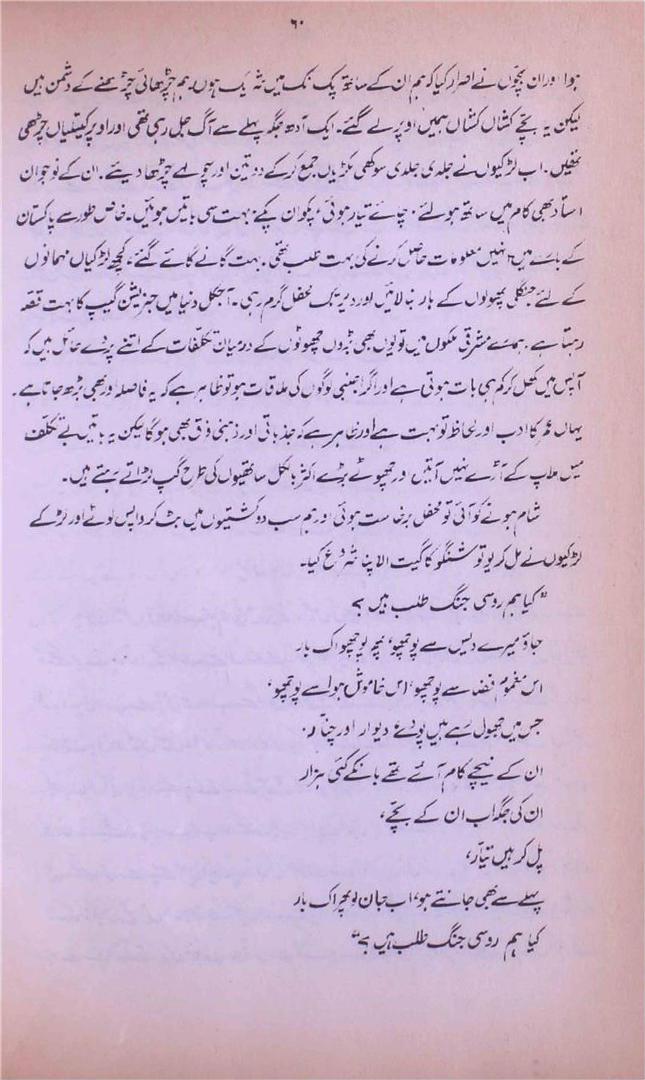 ۶۰
ہوا اور ان بچّوں نے اصرار کیا کہ ہم ان کے ساتھ پک نک میں شریک ہوں۔ ہم چڑھائی چڑھنے کے دشمن ہیں
لیکن یہ بچے کشاں کشاں ہمیں اوپر لے گئے۔ ایک آدھ جگہ پہلے سے آگ جل رہی تھی اور اوپر کیتلیاں چڑھی
تھیں۔ اب لڑکیوں نے جلدی جلدی سوکھی لکڑیاں جمع کر کے دو تین اور چولہے چڑھا دیئے۔ ان کے نوجوان
استاد بھی کام میں ساتھ ہو لئے، چائے تیار ہوئی، پکوان پکے، بہت سی باتیں ہوئیں۔ خاص طور سے پاکستان
کے بارے میں انہیں معلومات حاصل کرنے کی بہت طلب تھی۔ بہت گانے گائے گئے، کچھ لڑکیاں مہمانوں
کے لئے جنگلی پھولوں کے ہار بنا لائیں اور دیر تک محفل گرم رہی۔ آجکل دنیا میں جنریشن گیپ کا بہت قصّہ
رہتا ہے، ہمارے مشرقی ملکوں میں تو یوں بھی بڑوں چھوٹوں کے درمیان تکلّفات کے اتنے پردے حائل ہیں کہ
آپس میں کھل کر کم ہی بات ہوتی ہے اور اگر اجنبی لوگوں کی ملاقات ہو تو ظاہر ہے کہ یہ فاصلہ اور بھی بڑھ جاتا ہے۔
یہاں عمر کا ادب اور لحاظ تو بہت ہے اور ظاہر ہے کہ جذباتی اور ذہنی فرق بھی ہو گا لیکن یہ باتیں بے تکلّف
میل ملاپ کے آڑے نہیں آتیں اور چھوٹے بڑے اکثر بالکل ساتھیوں کی طرح گپ لڑاتے رہتے ہیں۔
شام ہونے کو آئی تو محفل برخاست ہوئی اور ہم سب دو کشتیوں میں بٹ کر واپس لوٹے اور لڑکے
لڑکیوں نے مل کر یوتو شنگو کا گیت الاپنا شروع کیا۔
"کیا ہم روسی جنگ طلب ہیں؟
جاؤ میرے دیس سے پوچھو، پھر پوچھو اک بار
اس مغموم فضا سے پوچھو، اس خاموش ہوا سے پوچھو،
جس میں جھول رہے ہیں پودے دیوار اور چنار،
ان کے نیچے کام آئے تھے بانکے کئی ہزار
ان کی جگہ اب ان کے بچے،
پل کر ہیں تیار،
پہلے سے بھی جانتے ہو، اب جان لو پھر اک بار
کیا ہم روسی جنگ طلب ہیں؟"